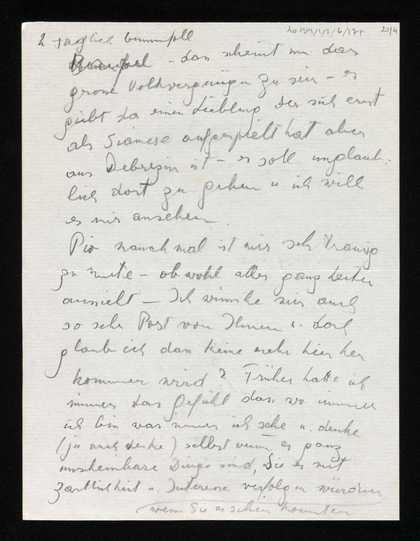 2 täglich
– das scheint nur das
grosse Volksvergnügen zu sein – es
giebt da einen Liebling der sich erst
als Siamese aufgespielt hat aber
aus Debrezin ist – es soll unglaub-
lich dort zu gehen u ich will
es mir ansehen
manchmal ist mir sehr traurig
zu mute – obwohl alles ganz heiter
aussieht – Ich wünsche mir auch
so sehr Post von Ihnen u. doch
glaube ich dass keine mehr hier her
kommen wird? Früher hatte ich
immer das Gefühl dass wo immer
ich bin was immer ich sehe u. denke
(ja auch denke) selbst wenn es ganz
unscheinbare Dinge sind, Sie es mit
Zärtlichkeit u. Interesse verfolgen würden
wenn Sie es sehen könnten